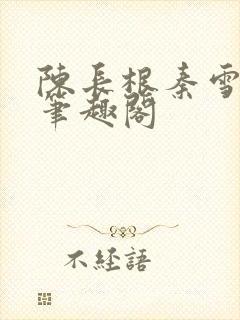 陳長根秦雪
筆趣閣
不經語